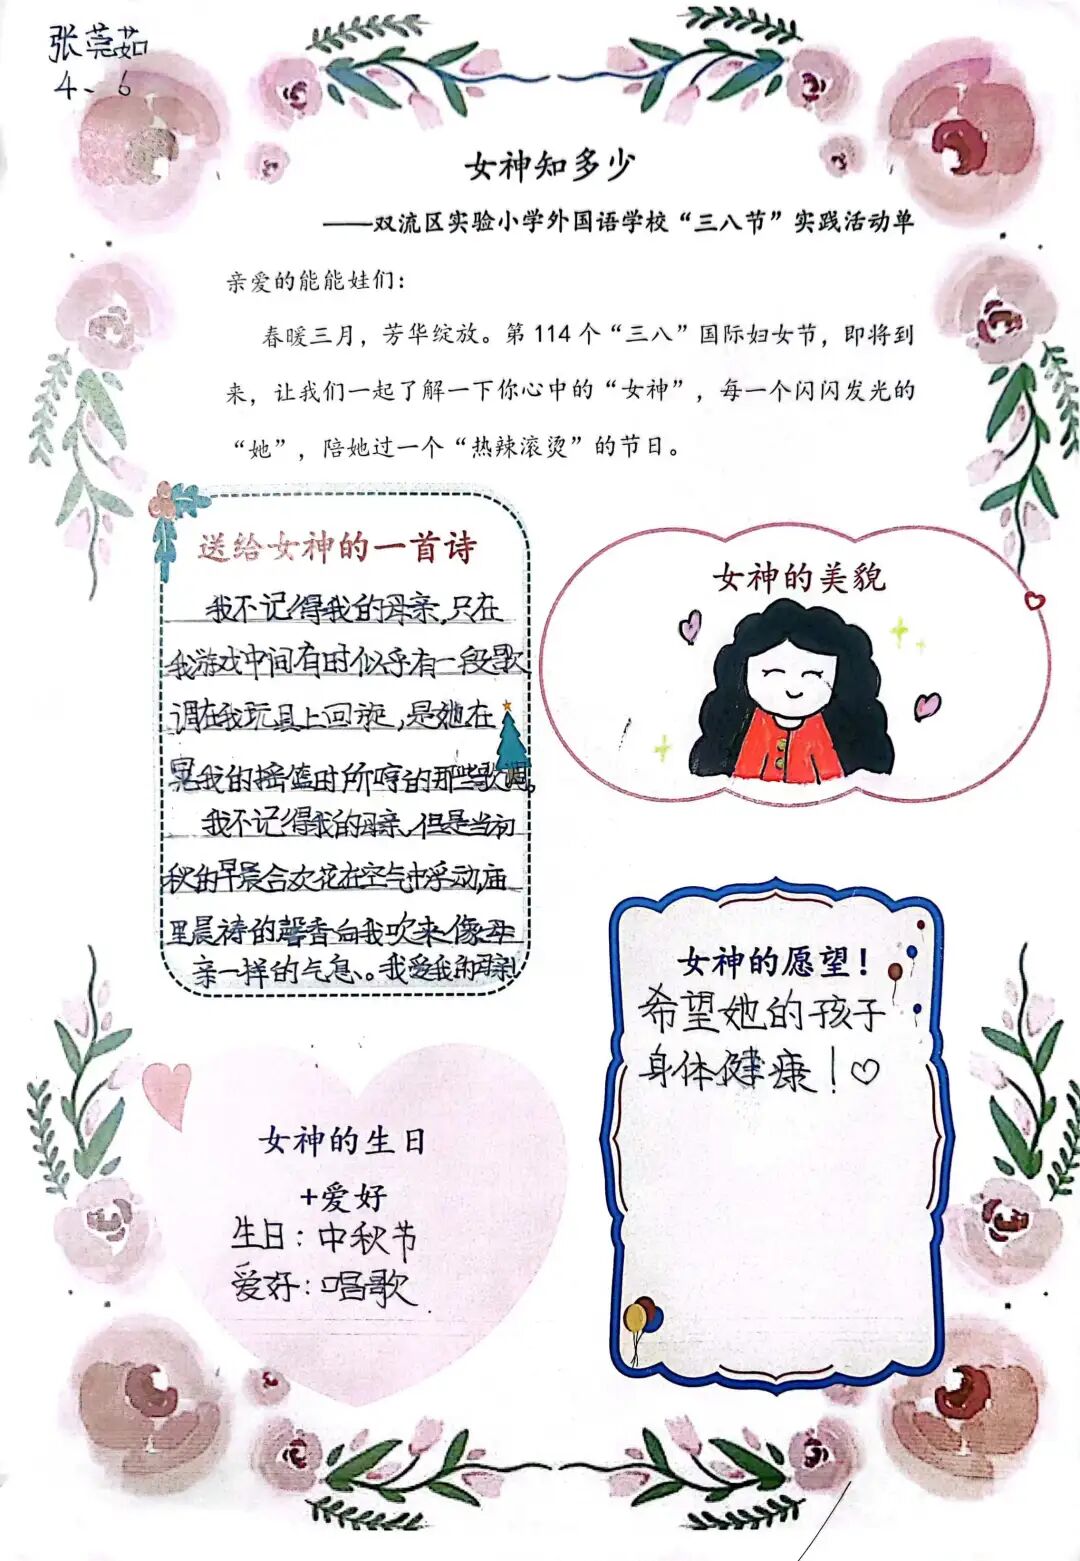 张莞茹
4、6
女神知多少
——双流区实验小学外国语学校“三八节”实践活动单
亲爱的能能娃们：
春暖三月，芳华绽放。第114个“三八”国际妇女节，即将到
来，让我们一起了解一下你心中的“女神”，每一个闪闪发光的
“她”，陪她过一个“热辣滚烫”的节日。
送给女神的一首诗
我不记得我的母亲，只在
我游戏中间有时似乎有一段歌
调在我玩具上回旋，是她在
晃我的摇篮时所哼的那些歌调，
我不记得我的母亲，但是当初
秋的早晨合欢花在空气中浮动，庙
里晨祷的馨香向我吹来像母
亲一样的气息、。我爱我的母亲！
女神的美貌
女神的愿望！
希望她的孩子
身体健康！♡
女神的生日
+爱好
生日：中秋节
爱好：唱歌